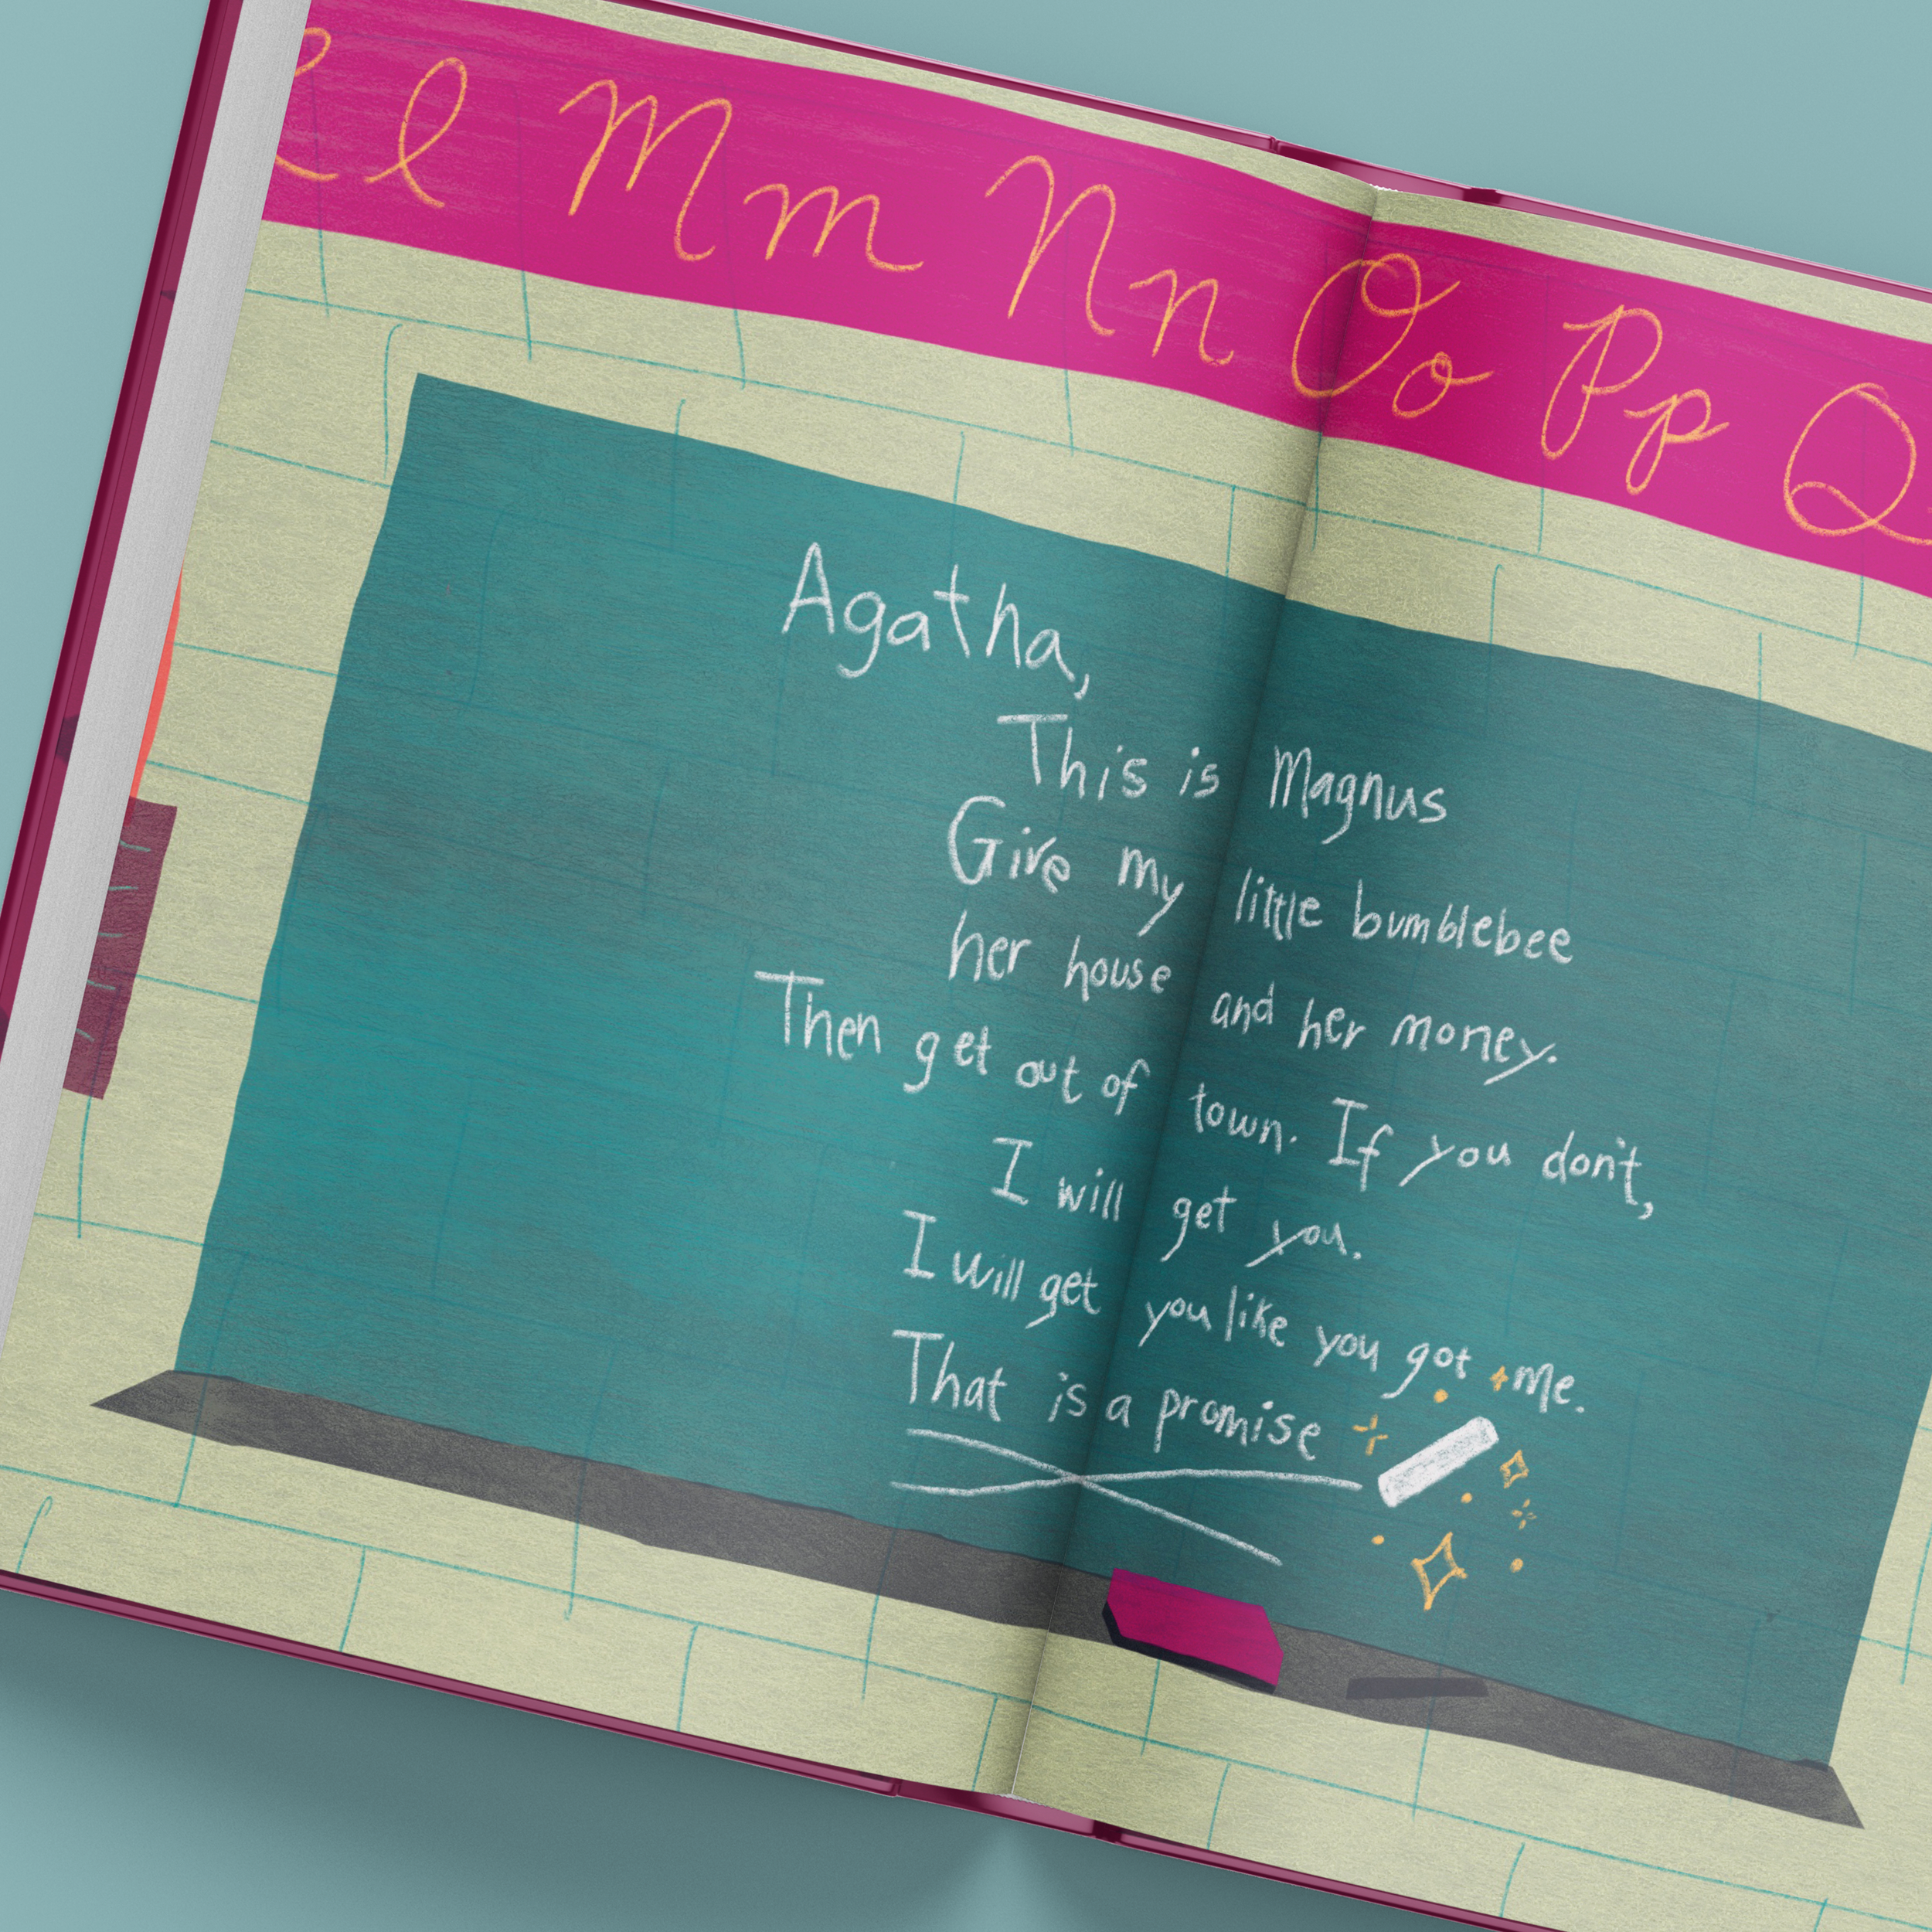 l l Mm Nn Oo Pp Q
Agatha,
This is Magnus
Give my little bumblebee
her house and her money.
Then get out of town. If you don't,
I will get you.
I will get you like you got me.
That is a promise